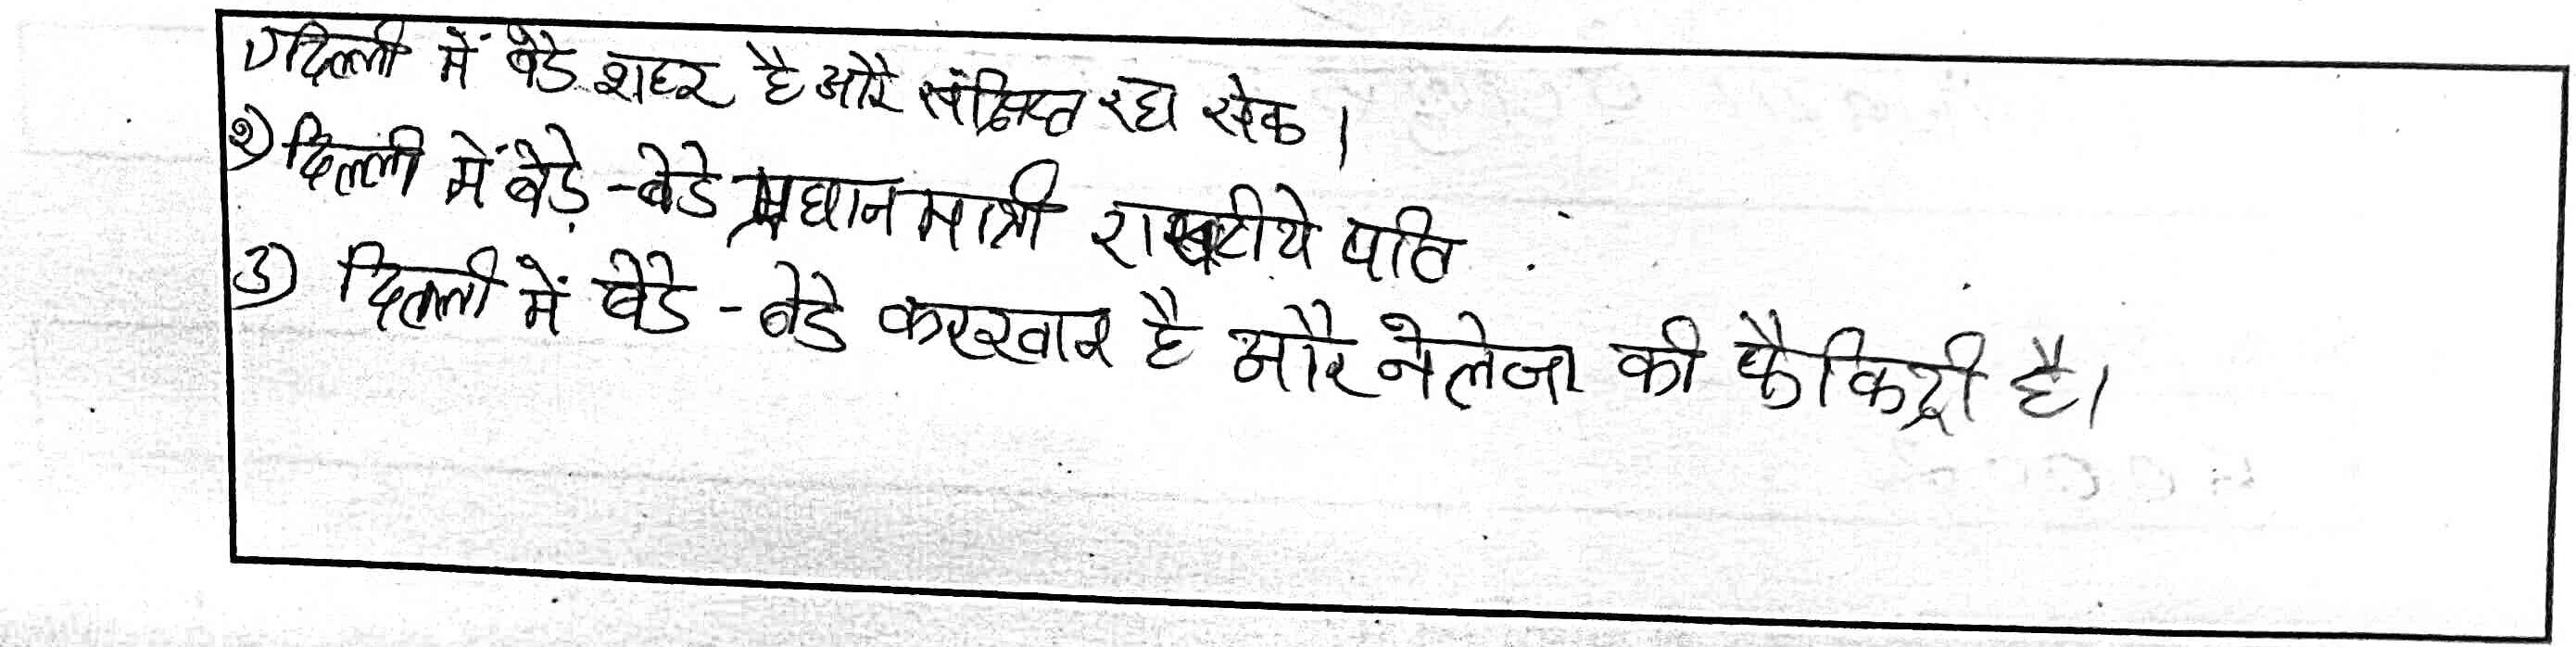 1) दिल्ली में बेडे शहर है और संक्षिप्त रह सेक ।
२) दिल्ली में बेड़े -बेडे प्रधान मात्री पति
3) दिल्ली में बेडे -बेडे करखार है और की फैकिट्री है।